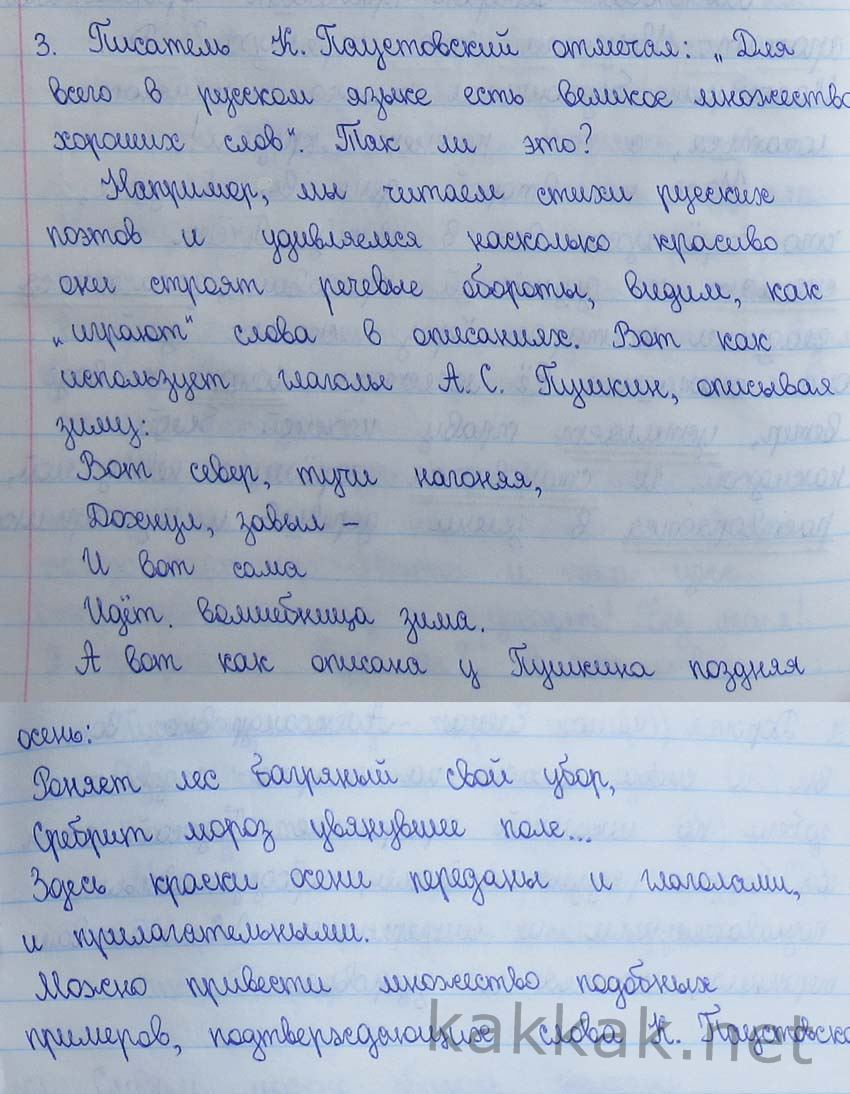 3. Писатель К. Паустовский отмечал: „Для
всего в русском языке есть великое множество
хороших слов“. Так ли это?
Например, мы читаем стихи русских
поэтов и удивляемся насколько красиво
они строят речевые обороты, видим, как
„играют“ слова в описаниях. Вот как
использует глаголы А. С. Пушкин, описывая
зиму:
Вот север, тучи нагоняя,
Дохнул, завыл –
И вот сама
Идёт. волшебница зима.
А вот как описана у Пушкина поздняя
осень:
Роняет лес багряный свой убор,
Сребрит мороз увянувшее поле...
Здесь краски осени переданы и глаголами,
и прилагательными.
Можно привести множество подобных
примеров, подтверждающих слова К. Паустовско
kakkak.net